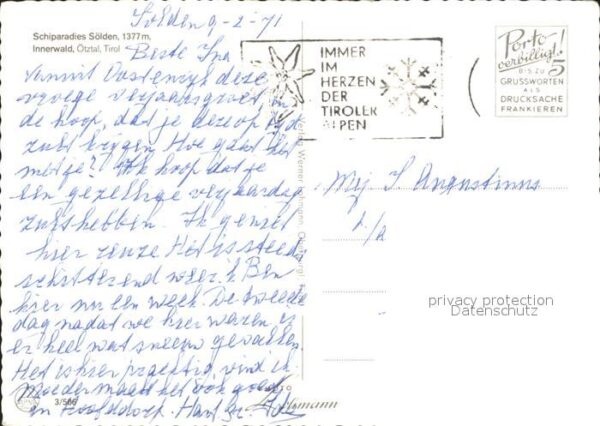 Sölden 9-2-'71
Schiparadies Sölden, 1377m.
Innerwald, Ötztal, Tirol
Beste Ina
Vanuit Oostenrijk deze
vroege verjaarsgroet, in
de hoop, dat je deze op tijd
zult krijgen. Hoe gaat het
met je? Ik hoop dat je
een gezellige verjaardag
zult hebben. Ik geniet
hier Het is steeds
schitterend weer. Ik Ben
hier nu een week. De tweede
dag nadat we hier waren is
er heel wat sneeuw gevallen.
Het is hier prachtig vind ik
Moeder maakt het ook goed
in Hoofddorp. Hart. gr.
3/566
IMMER
IM
HERZEN
DER
TIROLER
ALPEN
Porto
verbilligt!
BIS ZU 5
GRUSSWORTEN
ALS
DRUCKSACHE
FRANKIEREN
Mej. I. Augustinus
privacy protection
Datenschutz